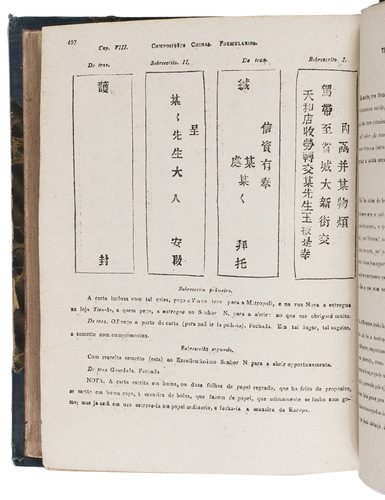 497 Cap. VIII. Composições Chinas. Formularios.
De tras. Sobrescrito II. De tras. Sobrescrito I.
內函并某物煩
駕帶至省城大新街交
天和店收勞轉交某先生玉披是幸
信資有奉
某
處某〻 拜托
緘
呈
某〻先生大人 安啟
護 封
Sobrescrito primeiro.
A carta inclusa com tal coisa, peço a leve para a Metropoli, e na rua Nova a entregue
na loja, a quem peço, a entregue ao Senhor N. para a abrir: no que me obrigará muito.
De tras. o porte da carta Fechada. Em tal lugar, tal sugeito.
a comette com comprimentos.
Sobrescrito segundo.
Com respeito remetto (esta) ao Excellentissimo Senhor N. para a abrir opportunamente.
De tras Guardada. Fechada
NOTA. A carta escrita em huma, ou duas folhas de papel regrado, que ha feito de proposito,
se mette em huma capa, á maneira de bolsa, que fazem de papel, que ultimamente se fecha com go-
ma; mas já está em uso escreve-la em papel ordinario, e fecha-la a maneira da Europa.